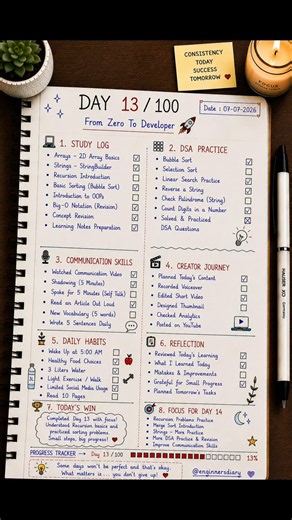 CONSISTENCY
TODAY
SUCCESS
TOMORROW
DAY 13 / 100
Date : 07-07-2026
From Zero To Developer
1. STUDY LOG
Arrays - 2D Array Basics
Strings - StringBuilder
Recursion Introduction
Basic Sorting (Bubble Sort)
Introduction to OOPs
Big-O Notation (Revision)
Concept Revision
Learning Notes Preparation
2. DSA PRACTICE
Bubble Sort
Selection Sort
Linear Search Practice
Reverse a String
Check Palindrome (String)
Count Digits in a Number
Solved & Practiced
DSA Questions
3. COMMUNICATION SKILLS
Watched Communication Video
Shadowing (5 Minutes)
Spoke for 5 Minutes (Self Talk)
Read an Article Out Loud
New Vocabulary (5 words)
Wrote 5 Sentences Daily
4. CREATOR JOURNEY
Planned Today's Content
Recorded Voiceover
Edited Short Video
Designed Thumbnail
Checked Analytics
Posted on YouTube
5. DAILY HABITS
Wake Up at 5:00 AM
Healthy Food Choices
3 Liters Water
Light Exercise / Walk
Limited Social Media Usage
Read 10 Pages
6. REFLECTION
Reviewed Today's Learning
What I Learned Today
Mistakes & Improvements
Grateful for Small Progress
Planned Tomorrow's Tasks
7. TODAY'S WIN
Completed Day 13 with focus!
Understood Recursion basics and
practiced sorting problems.
Small steps, big progress!
8. FOCUS FOR DAY 14
Recursion Problems Practice
Merge Sort Introduction
Strings - More Practice
More DSA Practice & Revision
Improve Communication Skills
PROGRESS TRACKER → Day 13 / 100
13%
Some days won't be perfect and that's okay.
What matters is ... you don't give up!
@enginnersdiary
HAUSER XO